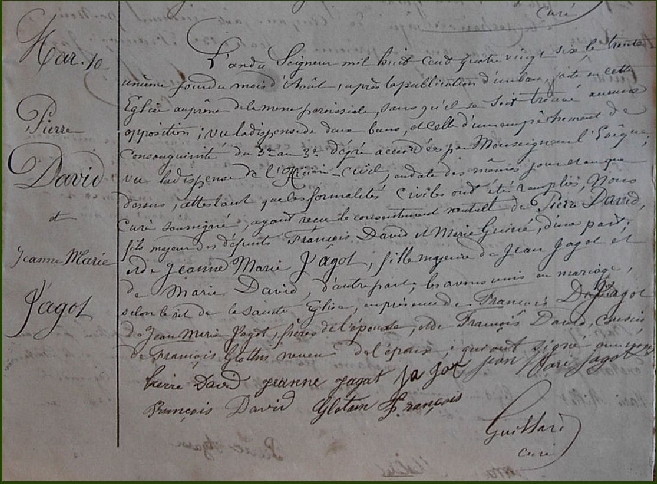 Curé
Mar. 10
Pierre
David
et
Jeanne Marie
Jagot
L'an du Seigneur mil huit cent quatre vingt six le trente
unième jour du mois d'Août, après la publication d'un ban, faite en cette
Eglise au prône de la messe paroissiale, sans qu'il se soit trouvé aucune
opposition; vu la dispense de deux bans, et celle d'un empêchement de
consanguinité du 3e au 3e degré accordées par Monseigneur l'Evêque,
vu la dispense de l' en date des mêmes jour et an que
dessus, attestant que les formalités civiles ont été remplies, Nous
Curé soussigné, ayant reçu le consentement mutuel de Pierre David,
fils majeur des défunts François David et Marie Guériné, d'une part;
et de Jeanne Marie Jagot, fille mineure de Jean Jagot et
de Marie David d'autre part; les avons unis en mariage,
selon le rit de la Sainte Eglise, en présence de François Jagot
de Jean Marie Jagot, frères de l'épouse, et de François David, cousin
de François Glotin neveu de l'époux, qui ont signé
Pierre David jeanne jagot jagot jean Mari Jagot
François David Glotin François
Guittard
curé